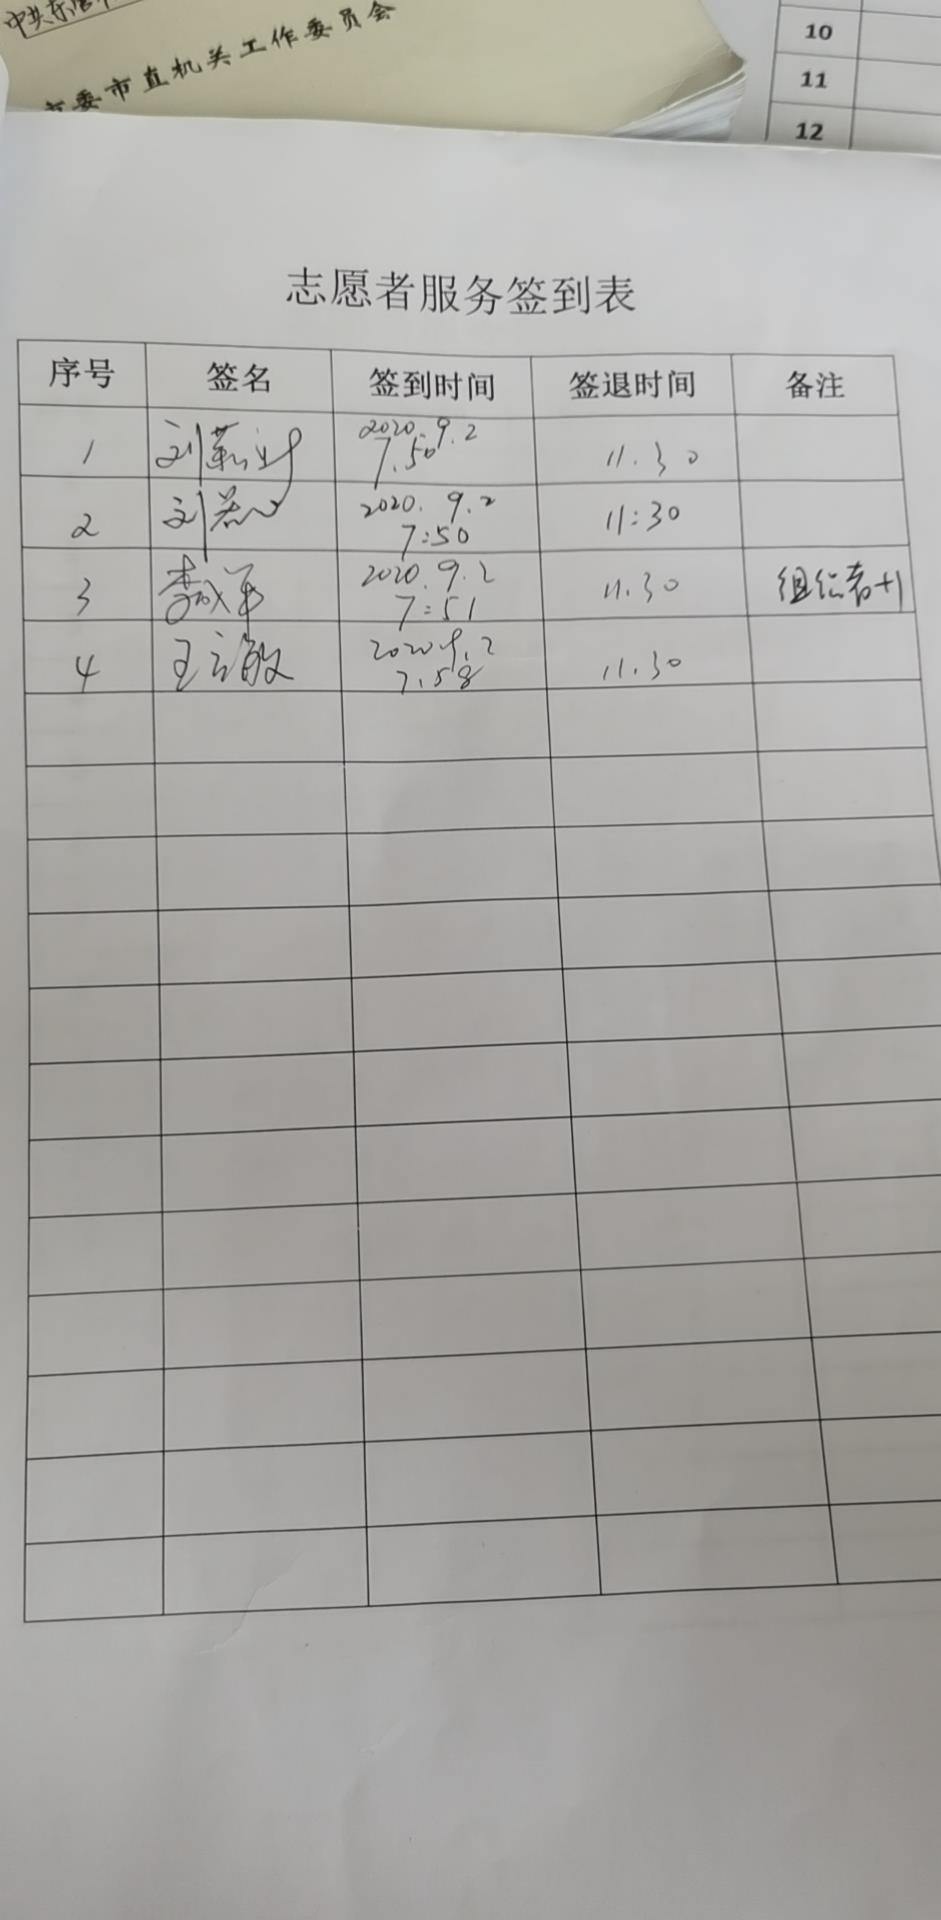 中共东营市
市委市直机关工作委员会
10
11
12
志愿者服务签到表
序号 签名 签到时间 签退时间 备注
1 刘 2020.9.2 7.50 11.30
2 刘 2020.9.2 7:50 11:30
3 李成军 2020.9.2 7:51 11.30 组织者+1
4 王立敏 2020.9.2 7.58 11.30